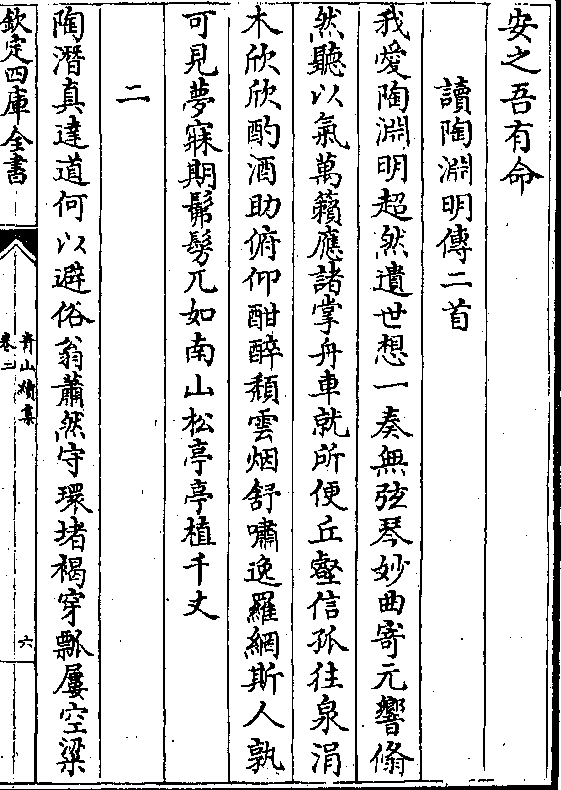 安之吾有命
讀陶淵明傳二首
我愛陶淵明超然遺世想一奏無弦琴妙曲寄元響翛
然聽以氣萬籟應諸掌舟車就所便丘壑信孤往泉涓
木欣欣酌酒助俯仰酣醉頽雲烟舒嘯逸羅網斯人孰
可見夢寐期髴髣兀如南山松亭亭植千丈
二
陶潛真達道何以避俗翁蕭然守環堵褐穿瓢屢空粱
欽定四庫全書
青山續集
卷三
六